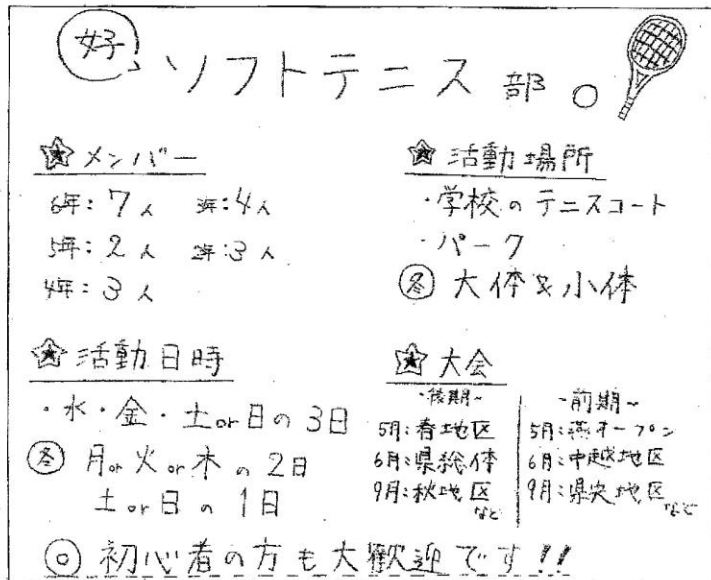 好 ソフトテニス部
メンバー
6年：7人 3年：4人
5年：2人 2年：3人
4年：3人
活動場所
・学校のテニスコート
・パーク
冬 大体&小体
活動日時
・水・金・土or日の3日
冬 月or火or木の2日
土or日の1日
大会
-後期~
5月：春地区
6月：県総体
9月：秋地区
など
-前期~
5月：燕オープン
6月：中越地区
9月：県央地区
など
◎ 初心者の方も大歓迎です!!